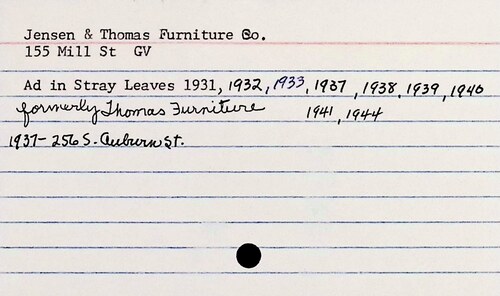 Jensen & Thomas Furniture Co.
155 Mill St GV
Ad in Stray Leaves 1931, 1932, 1933, 1937, 1938, 1939, 1940
formerly Thomas Furniture 1941, 1944
1937- 256 S. Auburn St.